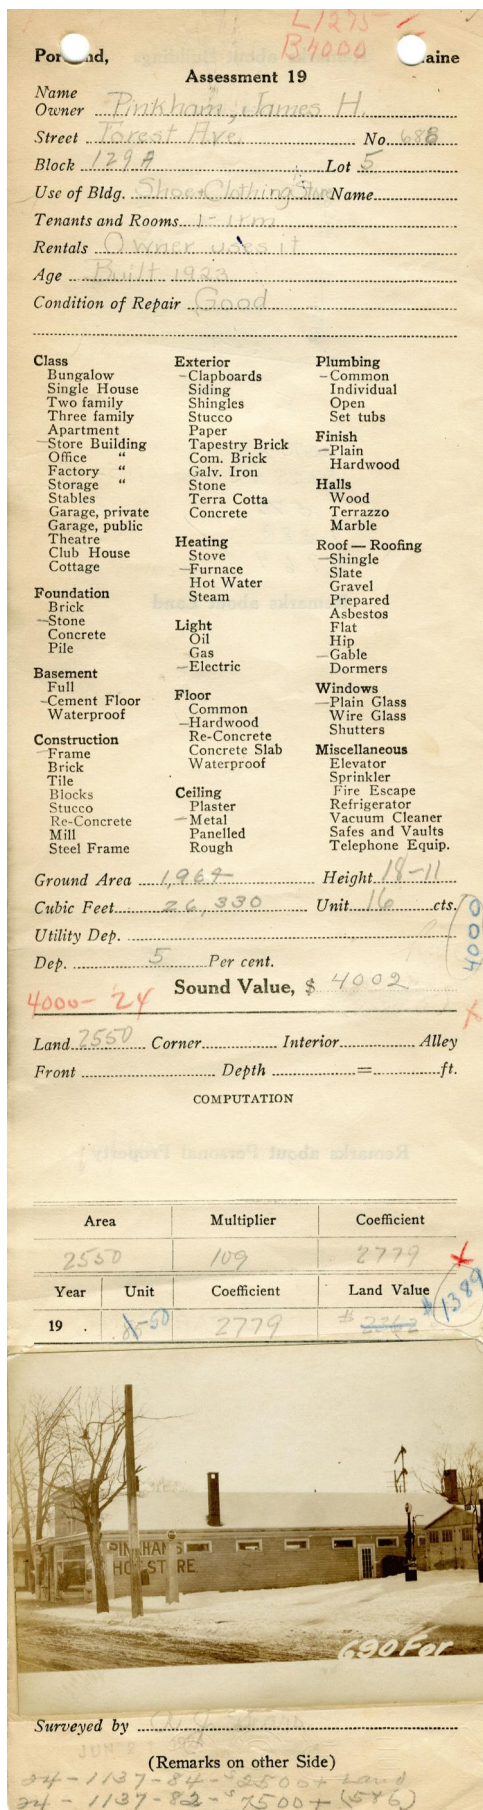 L1275
B4000
Portland, Maine
Assessment 19
Name
Owner Pinkham, James H.
Street Forest Ave. No. 688
Block 129A Lot 5
Use of Bldg. Shoe & Clothing Store Name
Tenants and Rooms 1-1rm
Rentals Owner uses it
Age Built 1923
Condition of Repair Good
Class
Bungalow
Single House
Two family
Three family
Apartment
-Store Building
Office "
Factory "
Storage "
Stables
Garage, private
Garage, public
Theatre
Club House
Cottage
Foundation
Brick
-Stone
Concrete
Pile
Basement
Full
-Cement Floor
Waterproof
Construction
-Frame
Brick
Tile
Blocks
Stucco
Re-Concrete
Mill
Steel Frame
Exterior
-Clapboards
Siding
Shingles
Stucco
Paper
Tapestry Brick
Com. Brick
Galv. Iron
Stone
Terra Cotta
Concrete
Heating
Stove
-Furnace
Hot Water
Steam
Light
Oil
Gas
-Electric
Floor
Common
-Hardwood
Re-Concrete
Concrete Slab
Waterproof
Ceiling
Plaster
-Metal
Panelled
Rough
Plumbing
-Common
Individual
Open
Set tubs
Finish
-Plain
Hardwood
Halls
Wood
Terrazzo
Marble
Roof — Roofing
-Shingle
Slate
Gravel
Prepared
Asbestos
Flat
Hip
-Gable
Dormers
Windows
-Plain Glass
Wire Glass
Shutters
Miscellaneous
Elevator
Sprinkler
Fire Escape
Refrigerator
Vacuum Cleaner
Safes and Vaults
Telephone Equip.
Ground Area 1,964 Height 18-11
Cubic Feet 26,330 Unit 16 cts.
4000
Utility Dep.
Dep. 5 Per cent.
Sound Value, $ 4002
4000-24 X
Land 2550 Corner Interior Alley
Front Depth = ft.
COMPUTATION
Area Multiplier Coefficient
2550 109 2779 X
Year Unit Coefficient Land Value
19 . 50 2779 $ $1389
PINKHAM'S
SHOE STORE
690 For
Surveyed by
JUN
(Remarks on other Side)
24-1137-84-$2500+ Land
24-1137-82-$7500+(586)